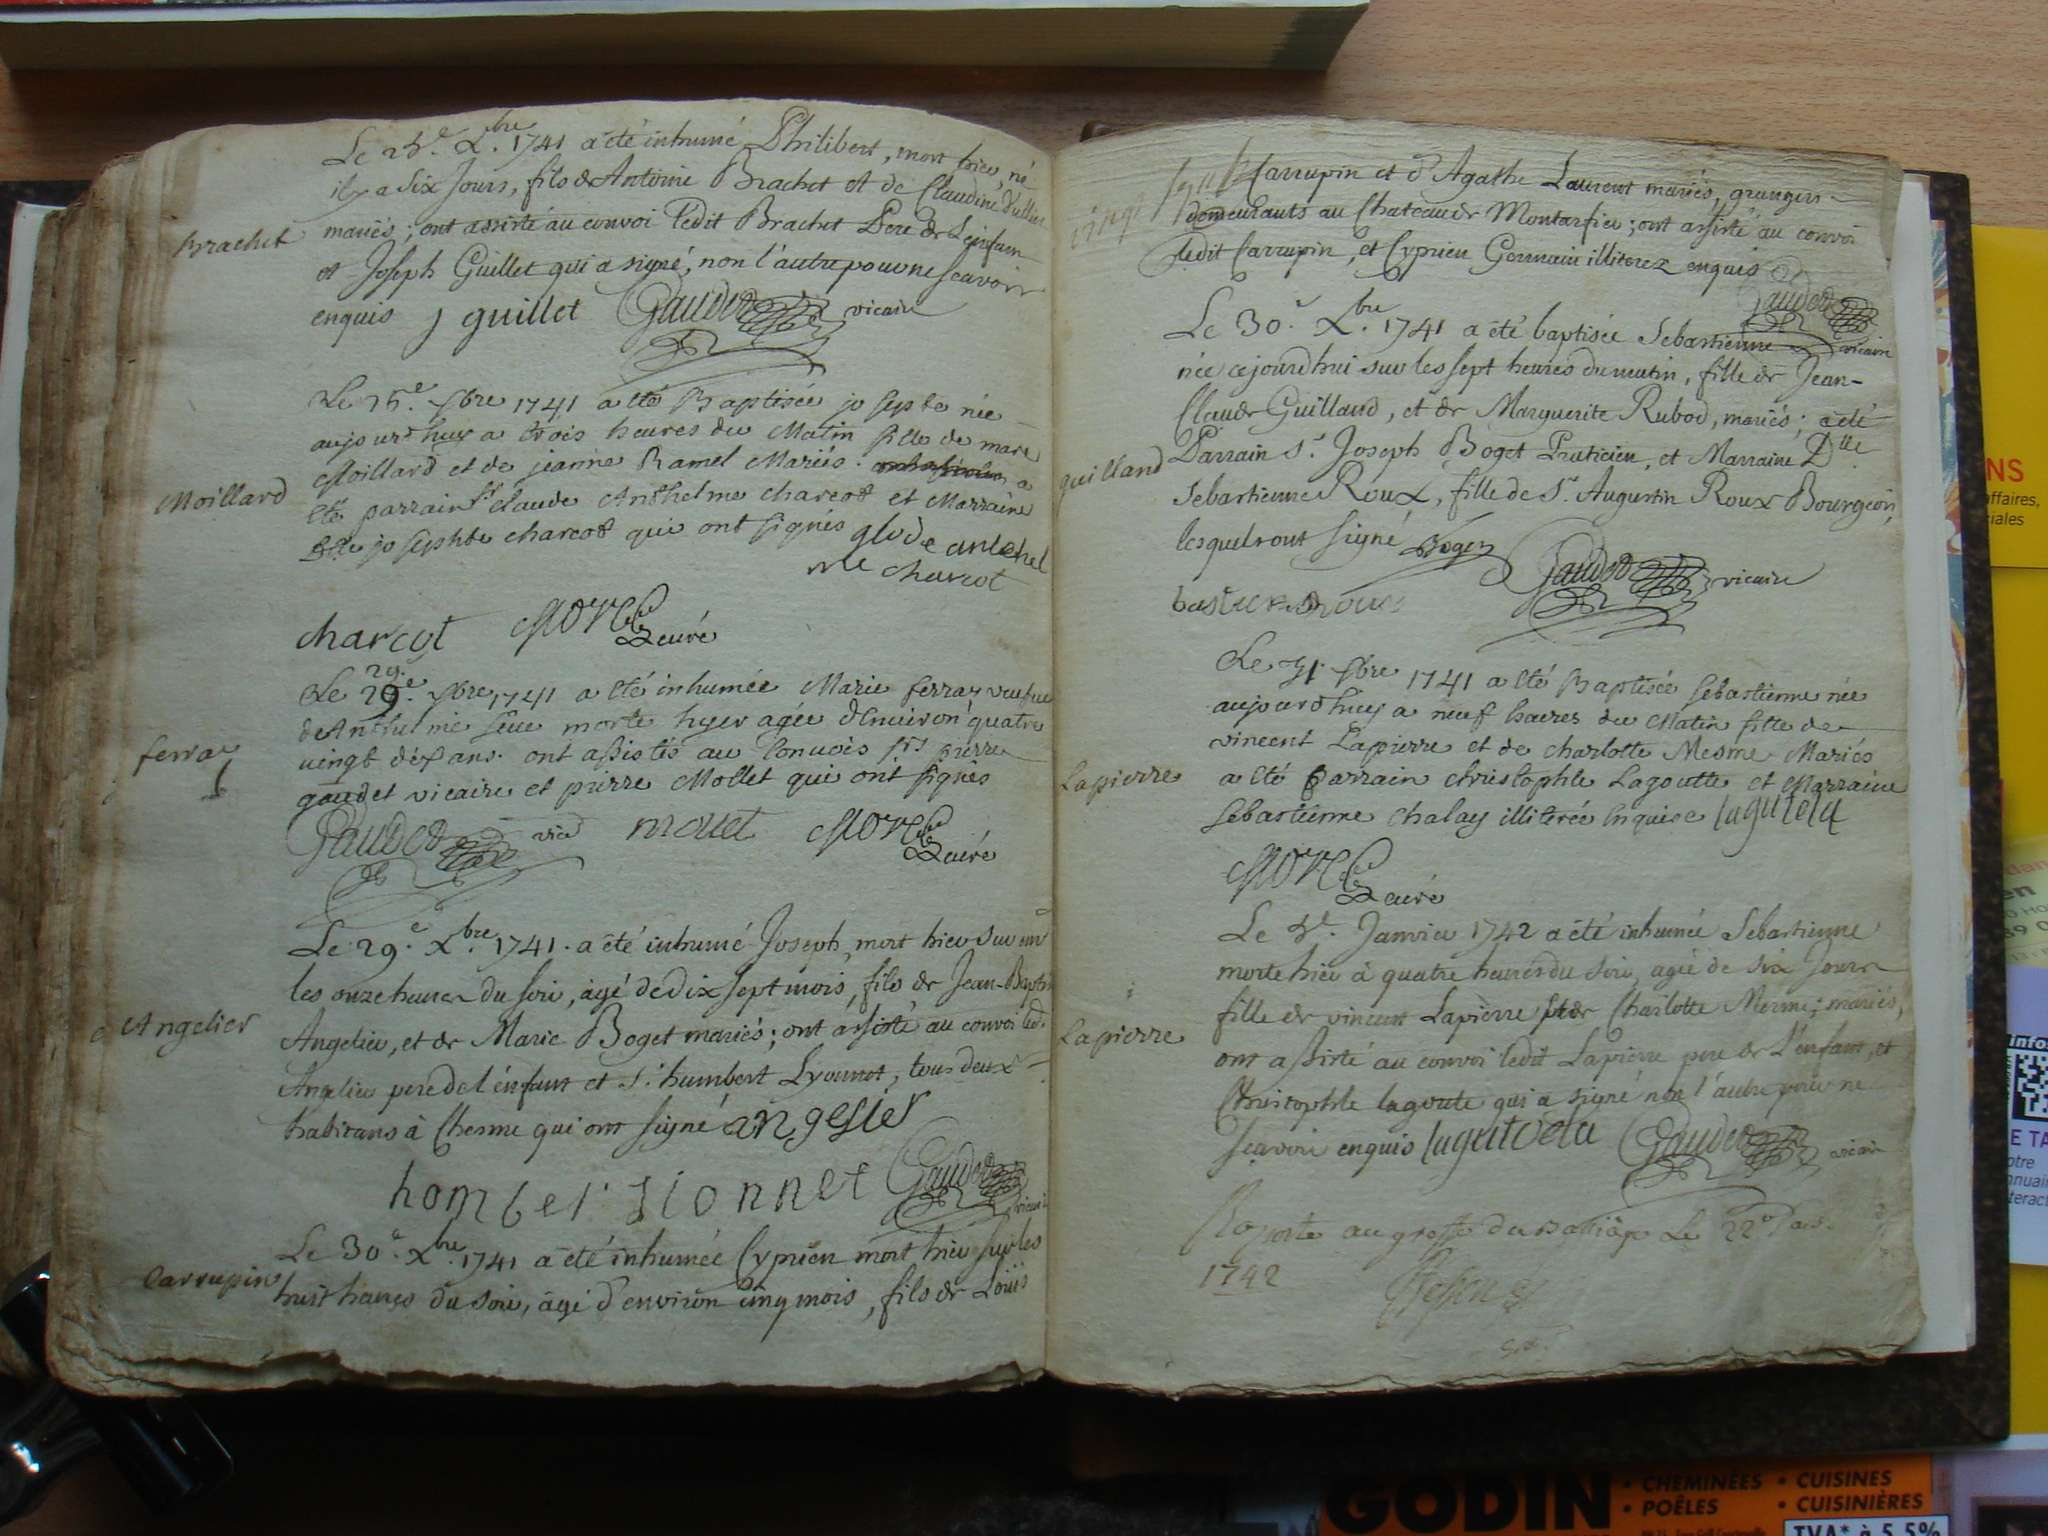 Brachet
Le 25.e X.bre 1741 a été inhumé Philibert, mort hier, né
il y a six Jours, fils de Antoine Brachet et de Claudine
mariés; ont assisté au convoi ledit Brachet Pere de L'enfant
et Joseph Guillet qui a signé, non l'autre pour ne scavoir
enquis j guillet Gaudet vicaire
Moillard
Le 26.e Xbre 1741 a eté Baptisée josepte née
aujourdhuy a trois heures du Matin fille de marc
Moillard et de jeanne Ramel Mariés. a
eté parrain Sr claude Anthelme charcot et Marraine
Dlle josephte charcot qui ont signés glode antehel
me charcot
charcot curé
ferra
29.
Le 29e. Xbre 1741 a eté inhumée Marie ferray veufue
de Anthelme morte hyer agée d'Enuiron quatre
uingt dix ans. ont assistés au Conuois srs pierre
gaudet vicaire et pierre Mollet qui ont signés
Gaudet vic molet curé
Angelier
Le 29.e X.bre 1741. a été inhumé Joseph, mort hier sur
les onze heures du soir, agé de dix sept mois, fils de Jean-Baptiste
Angelier, et de Marie Boget mariés; ont assisté au convoi led.
Angelier pere de l'énfant et Sr. humbert Lyonnet, tous deux
habitans à Cherme qui ont signé angelier
hombert lionnet Gaudet vicaire
Carrupin
Le 30e. X.bre 1741 a été inhumée Cyprien mort hier sur les
huit heures du soir, agé d'environ cinq mois, fils de Loüis
Carrupin et d'Agathe Laurent mariés, grangers
demeurants au Chateau de Montarfier; ont assisté au convoi
ledit Carrupin, et Cyprien Germain illiterez enquis
Gaudet vicaire
guilland
Le 30.e X.bre 1741 a été baptisée Sebastienne
née cejourdhui sur les sept heures du matin, fille de Jean-
Claude Guilland, et de Marguerite Rubod, mariés; a été
Parrain Sr. Joseph Boget Praticien, et Marraine Dlle
Sebastienne Roux, fille de Sr. Augustin Roux Bourgeois,
lesquels ont signé Boget Gaudet vicaire
Lapierre
Le 31. Xbre 1741 a eté Baptisée sebastienne née
aujourdhuy a neuf heures du Matin fille de
vincent Lapierre et de charlotte Mesme Mariés
a eté parrain christophle Lagoutte et Marraine
sebastienne chalay illiterée Enquise
curé
Lapierre
Le 5e. Janvier 1742 a été inhumée Sebastienne
morte hier à quatre heures du soir, agée de six Jours
fille de vincent Lapierre et de Charlotte Mermé, mariés,
ont assisté au convoi ledit Lapierre pere de L'enfant, et
Christophle lagoute qui a signé non l'autre pour ne
sçavoir enquis Gaudet vicaire
au greffe du Balliage Le 22e
1742
NS
affaires,
ciales
Infos
GODIN
• CHEMINÉES • CUISINES
• POÊLES • CUISINIÈRES
TVA* à 5,5%